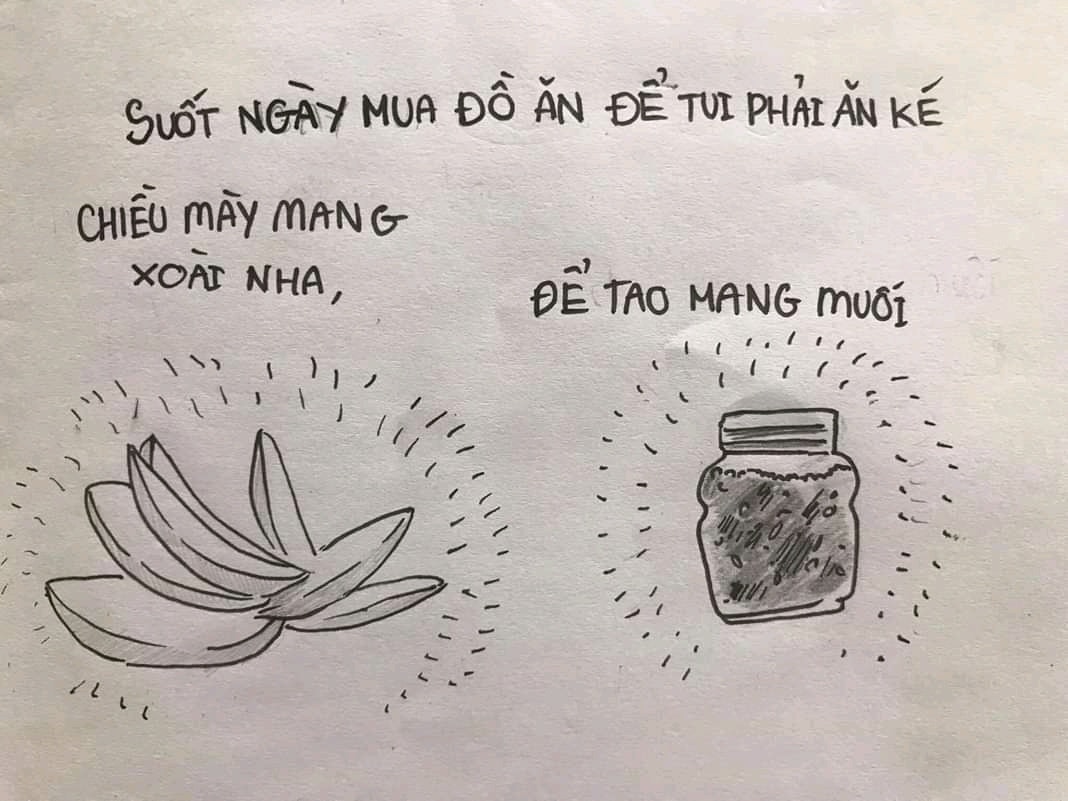 SUỐT NGÀY MUA ĐỒ ĂN ĐỂ TUI PHẢI ĂN KÉ
CHIỀU MÀY MANG
XOÀI NHA,
ĐỂ TAO MANG MUỐI